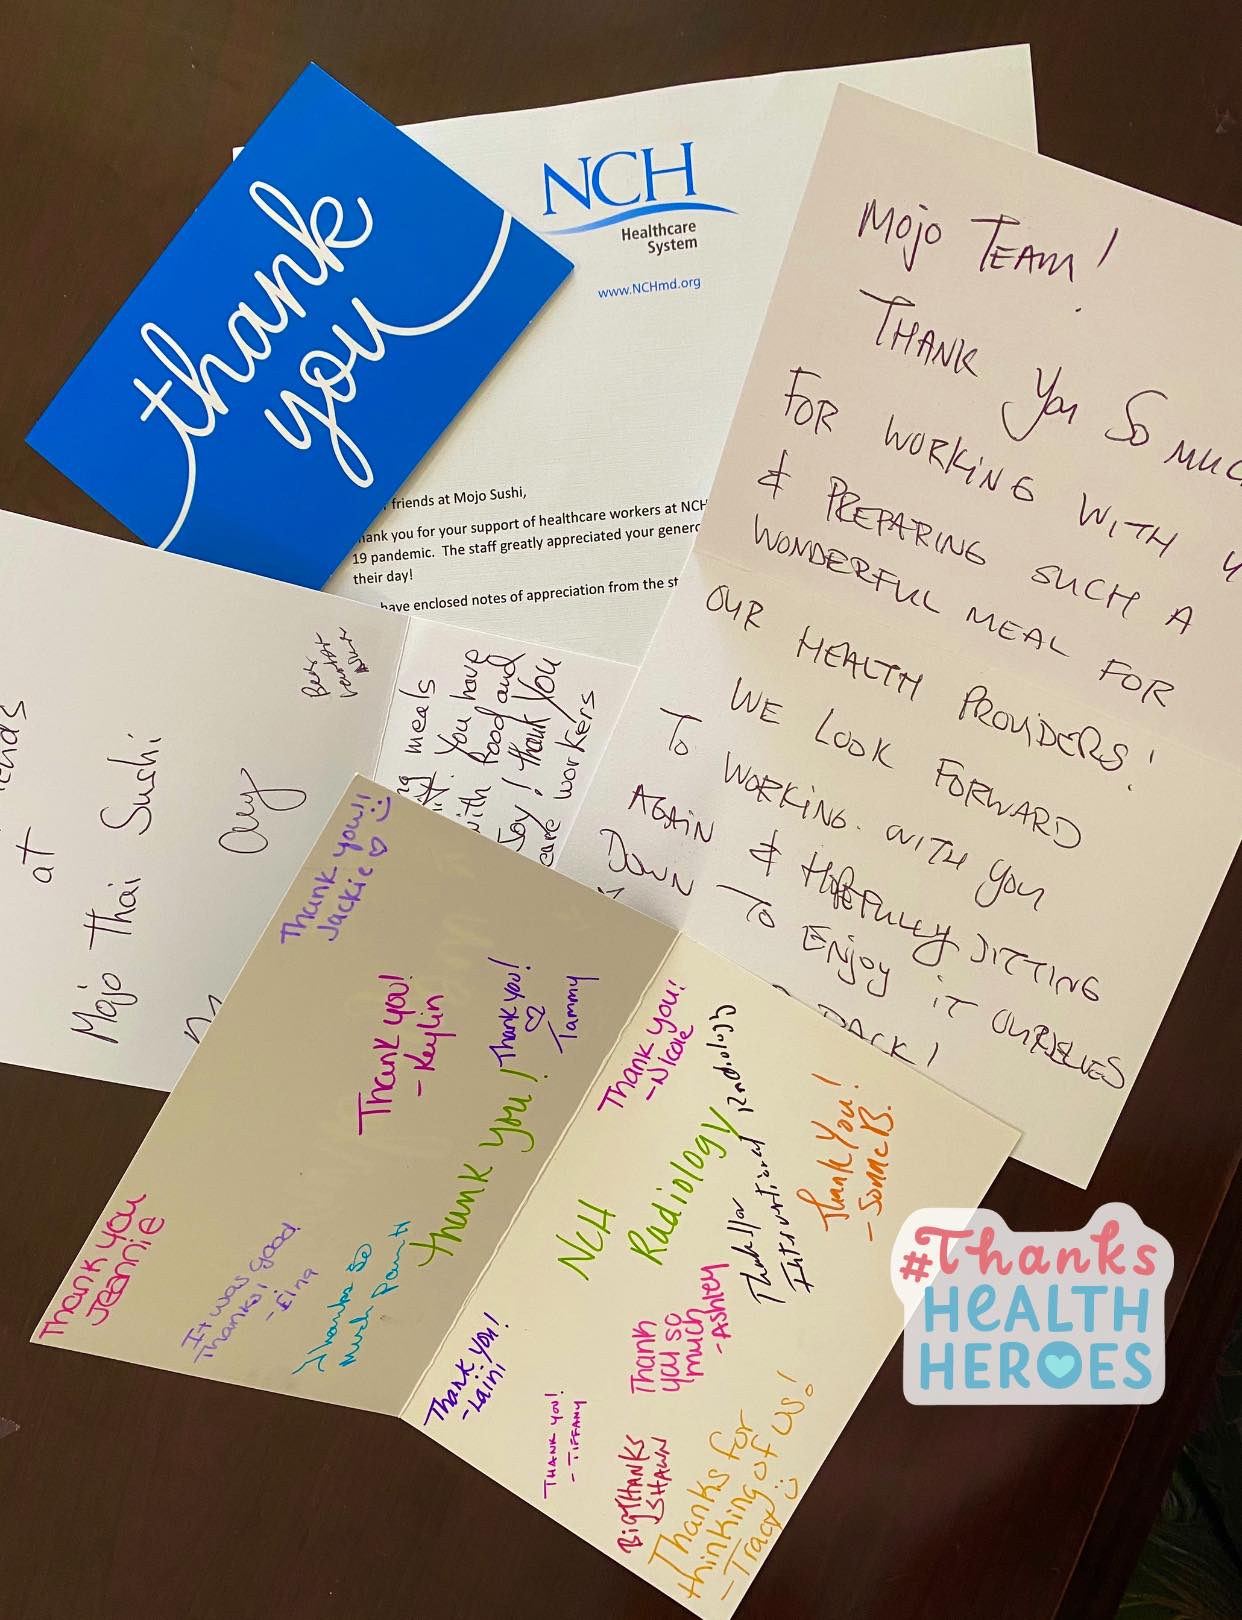 thank
you
NCH
Healthcare
System
www.NCHmd.org
friends at Mojo Sushi,
hank you for your support of healthcare workers at NCH
19 pandemic. The staff greatly appreciated your genero
their day!
have enclosed notes of appreciation from the st
Mojo TEAM!
THANK You So MUC
FOR WORKING WITH U
& PREPARING SUCH A
WONDERFUL MEAL FOR
OUR HEALTH PROViDERS!
WE LOOK FORWARD
To WORKiNG WiTH you
AGAiN & HOPEFULLY SITTING
DOWN To ENjoy iT OURSELVES
BACK!
at
Mojo Thai Sushi
meals
You have
with food and
Joy! Thank You
care workers
Thank you!!
Jackie
Thank you!
- Keylin
Thank you!
Tammy
Thank you!
Thank you
Jeannie
It was good
Thanks!
Thanks so
much
Thank you!
- Nicole
NCH
Radiology
Radiology
Thank You!
Thank you!
- Laini
Thank
you so
much
- Ashley
THANK YOU!
- TIFFANY
BIG THANKS
SHAWN
Thanks for
thinking of us!
- Tracy
#Thanks
HEALTH
HEROES